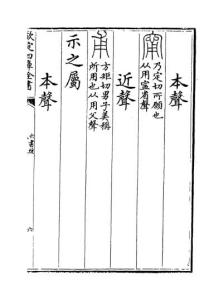 本聲
甯
乃定切所願也
从用寍省聲
近聲
甫
方矩切男子美稱
所用也从用父聲
示之屬
本聲
欽定四庫全書
六書統
六